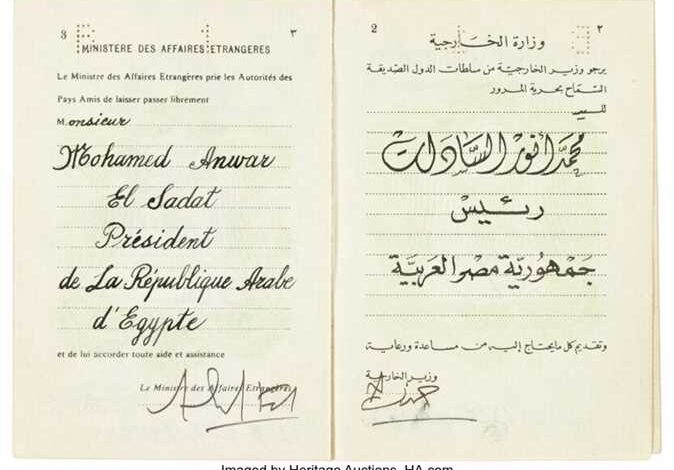 3 ٣
MINISTERE DES AFFAIRES ETRANGERES
Le Ministre des Affaires Etrangères prie les Autorités des
Pays Amis de laisser passer librement
Monsieur
Mohamed Anwar
El Sadat
Président
de La République Arabe
d'Egypte
et de lui accorder toute aide et assistance
Le Ministre des Affaires Etrangères
2 ٢
وزارة الخارجية
يرجو وزير الخارجية من سلطات الدول الصديقة
السماح بحرية المرور
للسيد
محمد أنور السادات
رئيس
جمهورية مصر العربية
وتقديم كل ما يحتاج إليه من مساعدة ورعاية
وزير الخارجية
Imaged by Heritage Auctions, HA.com